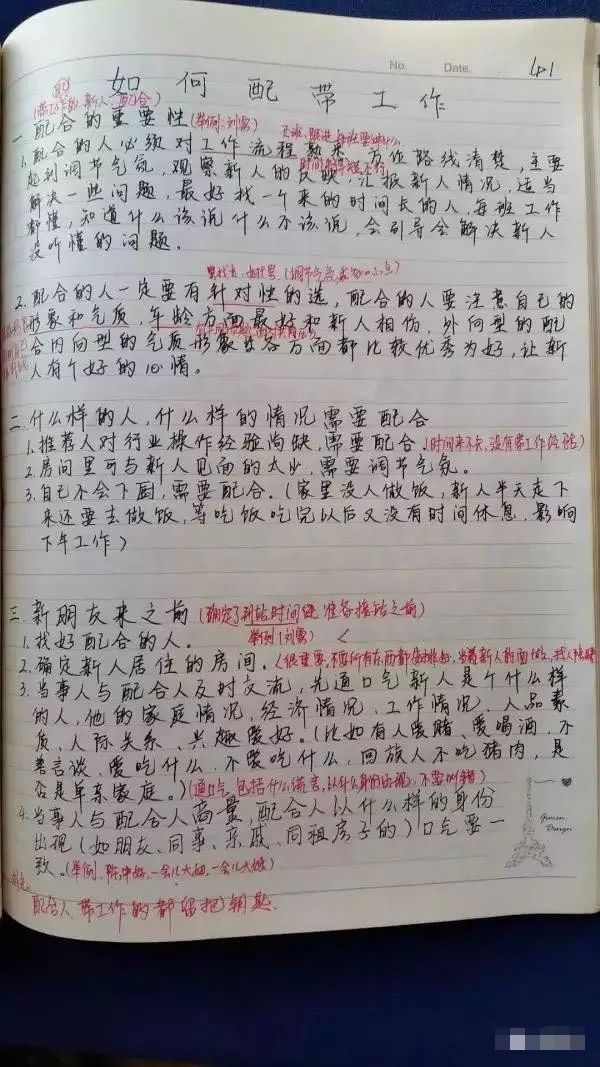 No.
Date.
如何配带工作
(带工作的、新人、配合)
一、配合的重要性(举例:刘雾)
1.配合的人必须对工作流程熟悉,方位路线清楚,主要
起到调节气氛,观察新人的反映,汇报新人情况,适当
解决一些问题,最好找一个来的时间长的人,每班工作
都懂,知道什么该说什么不该说,会引导会解决新人
没听懂的问题。
2.配合的人一定要有针对性的选,配合的人要注意自己的
形象和气质,年龄方面最好和新人相仿,外向型的配
合内向型的气质形象等各方面都比较优秀为好,让新
人有个好的心情。
二.什么样的人,什么样的情况需要配合
1.推荐人对行业操作经验尚缺,需要配合(时间来不长,没有带工作经验)
2.房间里可与新人见面的太少,需要调节气氛。
3.自己不会下厨,需要配合。(家里没人做饭,新人半天走下
来还要去做饭,等吃饭吃完以后又没有时间休息,影响
下午工作)
三.新朋友来之前(确定了到站时间 准备接站之前)
1.找好配合的人。 举例(刘雾)
2.确定新人居住的房间。(很重要,不要所有东西都
3.当事人与配合人及时交流,先通口气,新人是个什么样
的人,他的家庭情况、经济情况、工作情况、人品素
质、人际关系、兴趣爱好。(比如有人爱赌、爱喝酒,不
善言谈、爱吃什么,不爱吃什么,回族人不吃猪肉,是
否是单亲家庭。)(通口气,包括什么谎言,以什么身份出现,不要叫错)
4.当事人与配合人商量,配合人以什么样的身份
出现(如朋友、同事、亲戚、同租房子的)口气要一
致。(举例、陈 一会儿大姐、一会儿大嫂)
配合人、带工作的都留把钥匙.